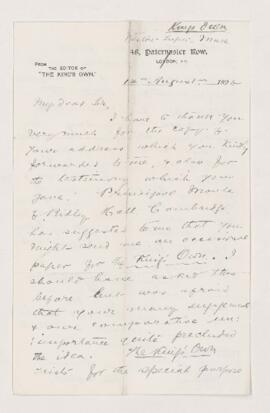 King's Own
48, Paternoster Row,
LONDON, E.C.
FROM
THE EDITOR OF
"THE KING'S OWN."
August 189
My dear Sir,
I have to thank you
very much for the copy of
your address which you kindly
forwarded to me, & also for
to testimony which you
gave. Principal Moule
of Ridley Hall Cambridge
has suggested to me that you
might send me an occasional
paper for The King's Own. I
should have asked this
before but was afraid
that your many engagements
& our comparative un-
importance quite precluded
the idea. The King's Own
exists for the special purpose